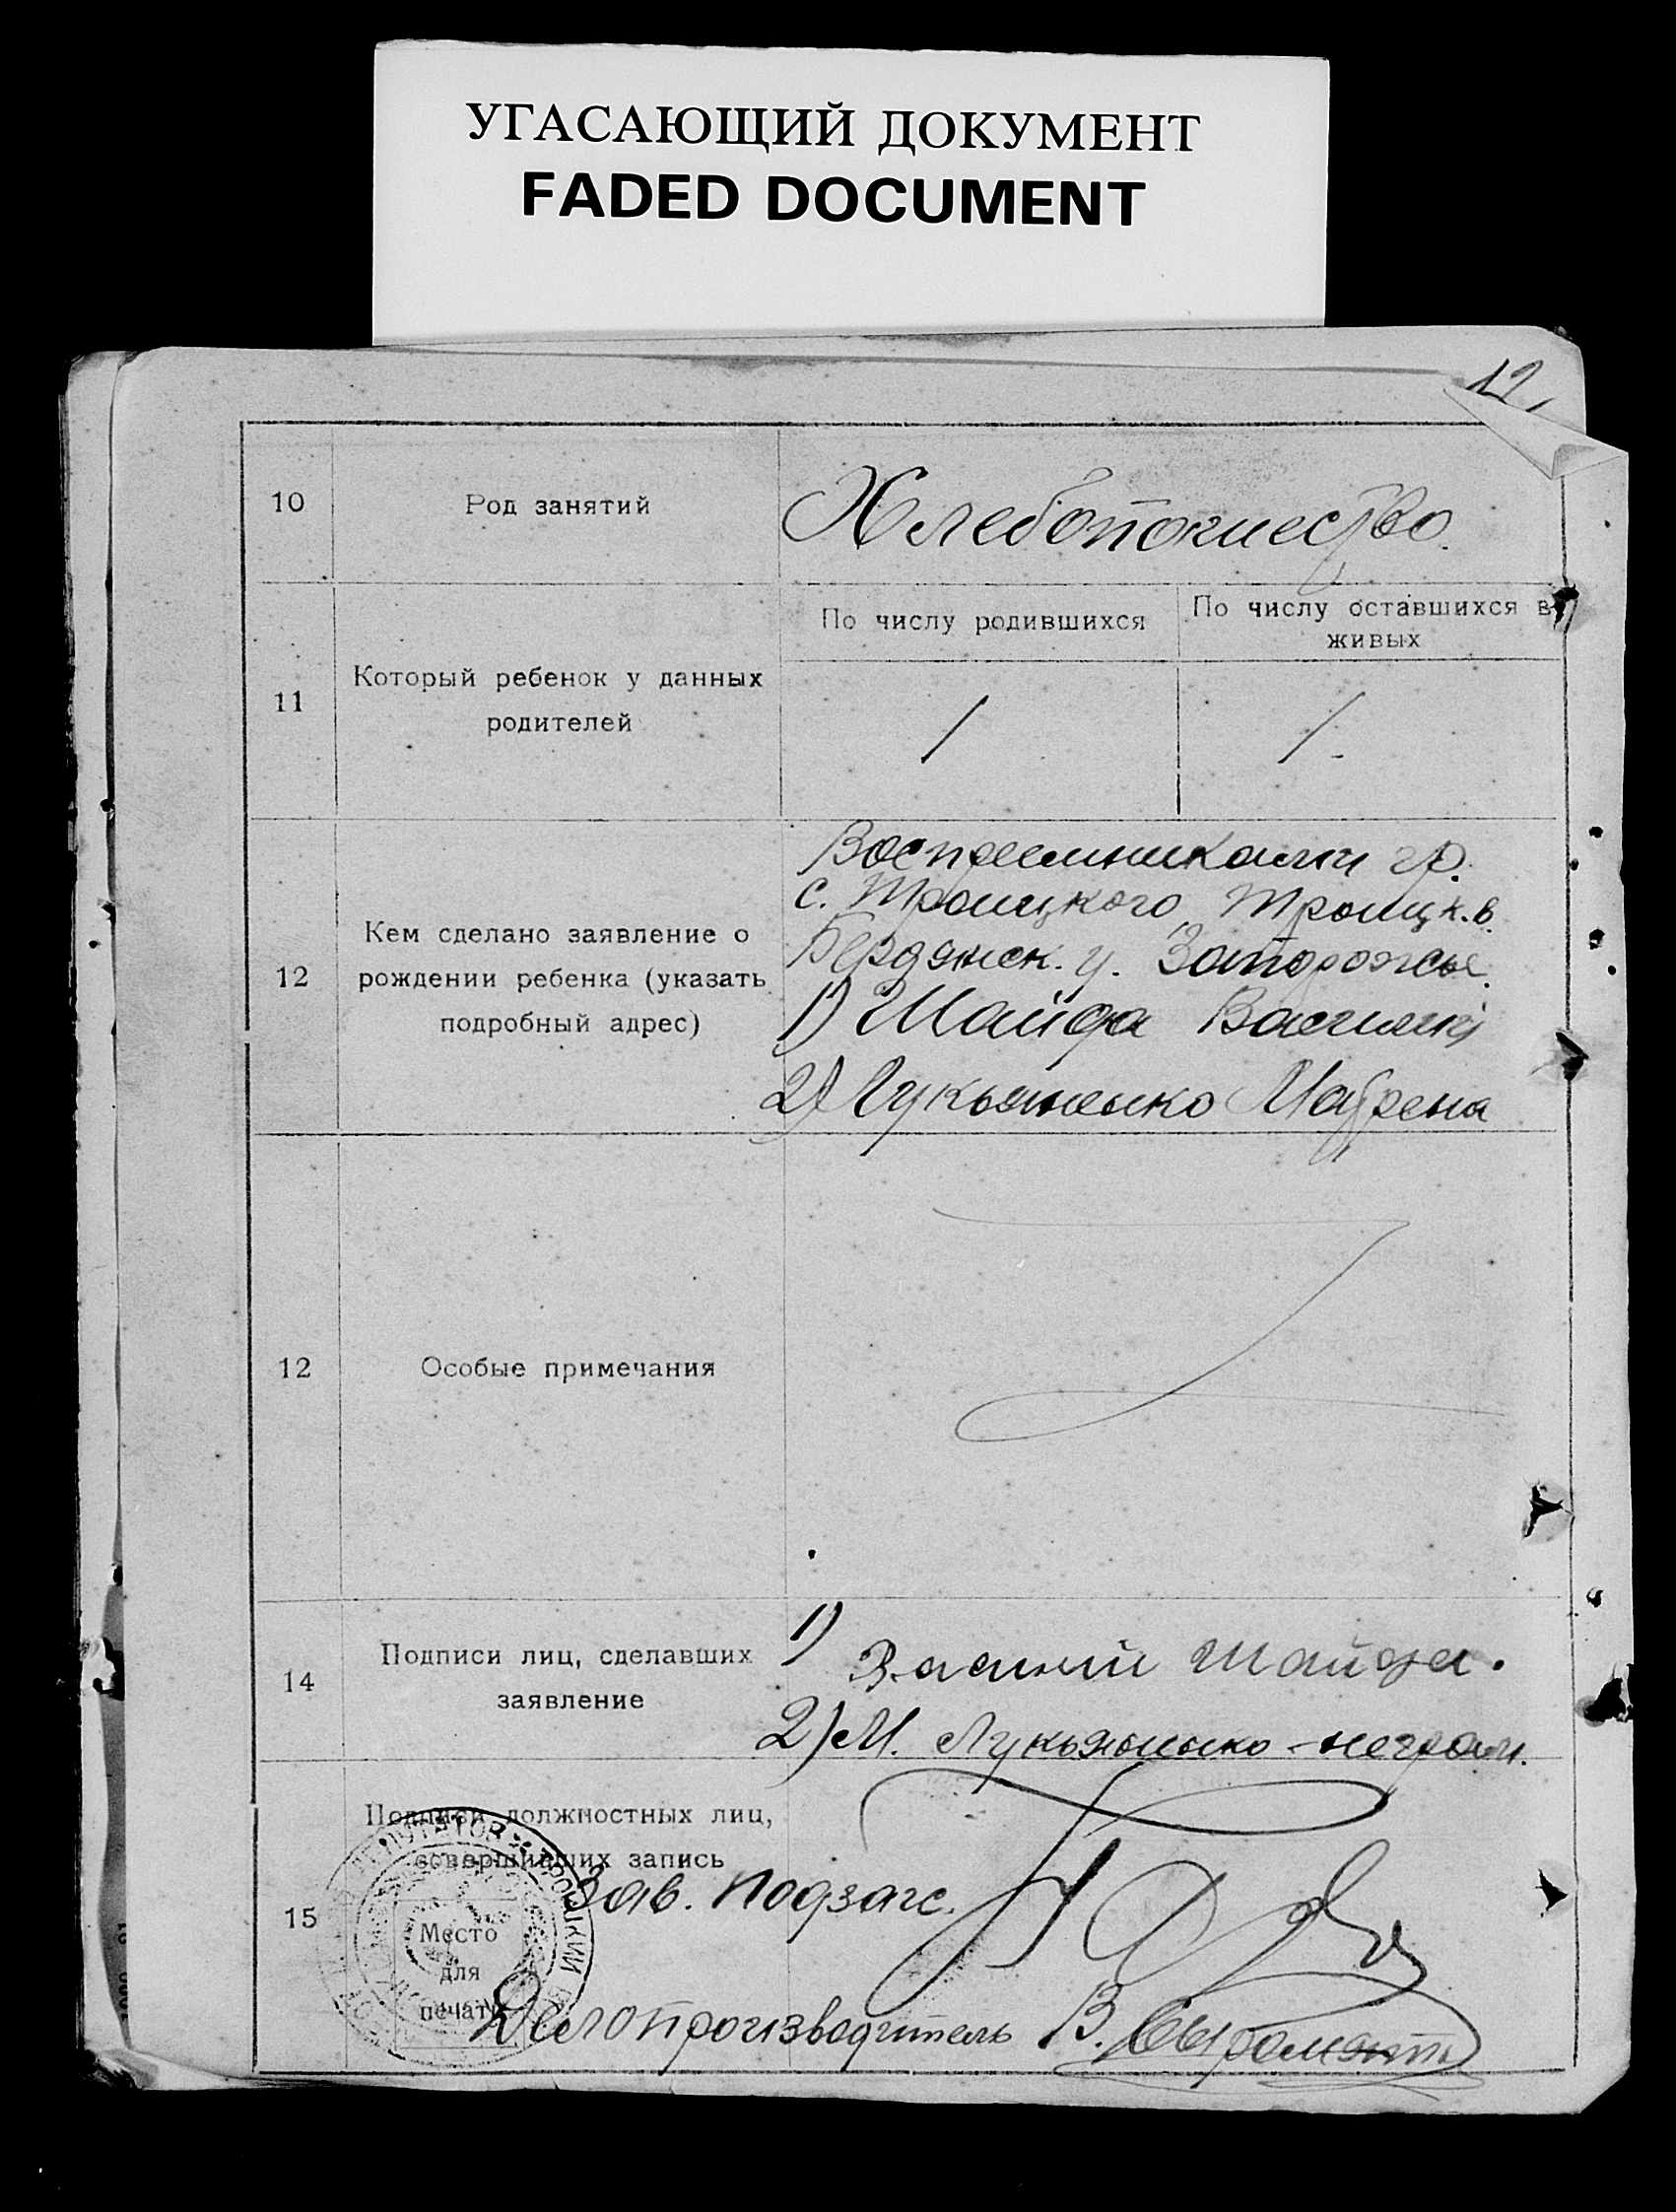 УГАСАЮЩИЙ ДОКУМЕНТ
FADED DOCUMENT
12,
10
Род занятий
Хлебопашество.
11
Который ребенок у данных
родителей
По числу родившихся
По числу оставшихся в
живых
1
1.
12
Кем сделано заявление о
рождении ребенка (указать
подробный адрес)
Воспреемниками гр.
с. Троицкого, Троицк. в.
Бердянск. у. Запорожье.
1) Шайда Василий
2) Лукьяненко Мавре­на
12
Особые примечания
14
Подписи лиц, сделавших
заявление
1) Василий Шайда.
2) М. Лукьяненко - неграм.
15
Подписи должностных лиц,
совершивших запись
Зав. подзагс.
Место
для
печати
Делопроизводитель В.